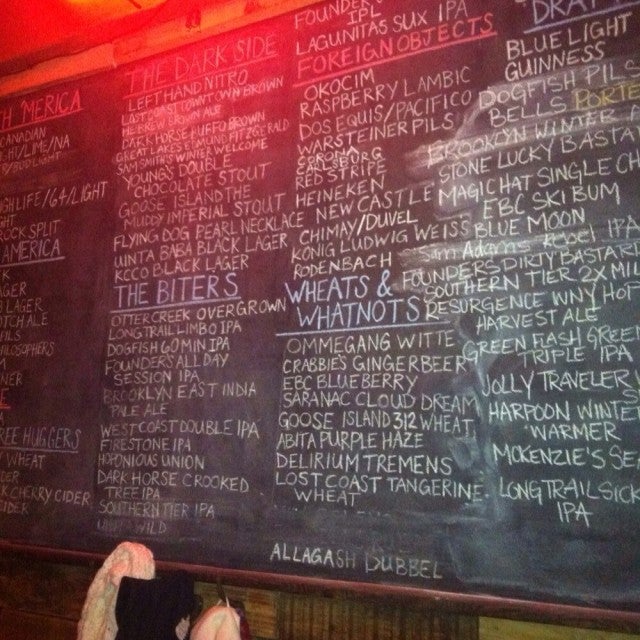 H 'MERICA
CANADIAN
HT/LIME/NA
BUD LIGHT
HIGHLIFE/64/LIGHT
ROCK SPLIT
AMERICA
LAGER
LAGER
ALE
PILS
PHILOSOPHERS
TREE HUGGERS
WHEAT
CHERRY CIDER
CIDER
THE DARK SIDE
LEFT HAND NITRO
BROWN
DARK HORSE BROWN
GREAT LAKES EDMUND FITZGERALD
SAM SMITHS WINTER WELCOME
YOUNGS DOUBLE
CHOCOLATE STOUT
GOOSE ISLAND THE
MUDDY IMPERIAL STOUT
FLYING DOG PEARL NECKLACE
UINTA BABA BLACK LAGER
KCCO BLACK LAGER
THE BITERS
OTTER CREEK OVERGROWN
LONG TRAIL LIMBO IPA
DOGFISH 60 MIN IPA
FOUNDERS ALL DAY
SESSION IPA
BROOKLYN EAST INDIA
PALE ALE
WEST COAST DOUBLE IPA
FIRESTONE IPA
HOPONIOUS UNION
DARK HORSE CROOKED
TREE IPA
SOUTHERN TIER IPA
WILD
FOUNDERS
IPL
LAGUNITAS SUX IPA
FOREIGN OBJECTS
OKOCIM
RASPBERRY LAMBIC
DOS EQUIS/PACIFICO
WARSTEINER PILS
CORONA
CARLSBURG
RED STRIPE
HEINEKEN
NEW CASTLE
CHIMAY/DUVEL
KÖNIG LUDWIG WEISS
RODENBACH
WHEATS &
WHATNOTS
OMMEGANG WITTE
CRABBIE'S GINGERBEER
EBC BLUEBERRY
SARANAC CLOUD DREAM
GOOSE ISLAND 312 WHEAT
ABITA PURPLE HAZE
DELIRIUM TREMENS
LOST COAST TANGERINE
WHEAT
ALLAGASH DUBBEL
DRAFT
BLUE LIGHT
GUINNESS
DOGFISH PILS
BELLS PORTE
BROOKLYN WINTER
STONE LUCKY BASTA
MAGIC HAT SINGLE CH
EBC SKI BUM
BLUE MOON
SAM ADAMS REBEL IPA
FOUNDERS DIRTY BASTARD
SOUTHERN TIER 2X MIL
RESURGENCE WNY HOP
HARVEST ALE
GREEN FLASH GREE
TRIPLE IPA
JOLLY TRAVELER
HARPOON WINTE
WARMER
MCKENZIE'S SEA
LONG TRAIL SICK
IPA